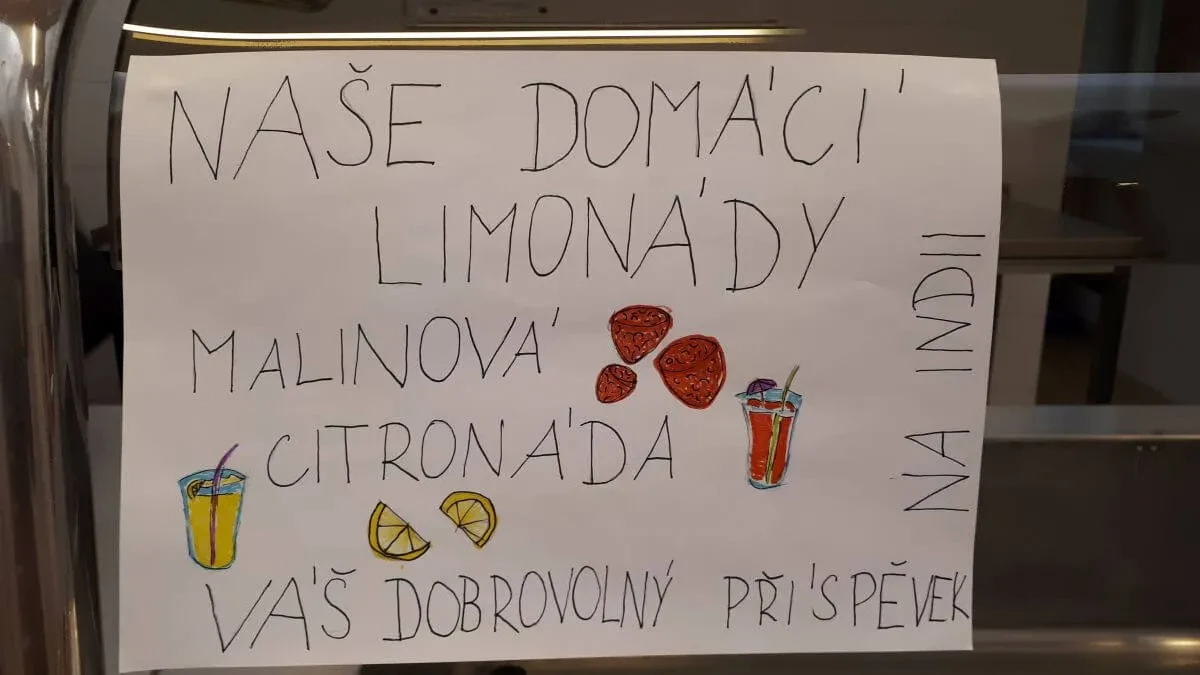 NAŠE DOMÁCÍ
LIMONÁDY
MALINOVÁ
CITRONÁDA
VÁŠ DOBROVOLNÝ PŘÍSPĚVEK
NA INDII